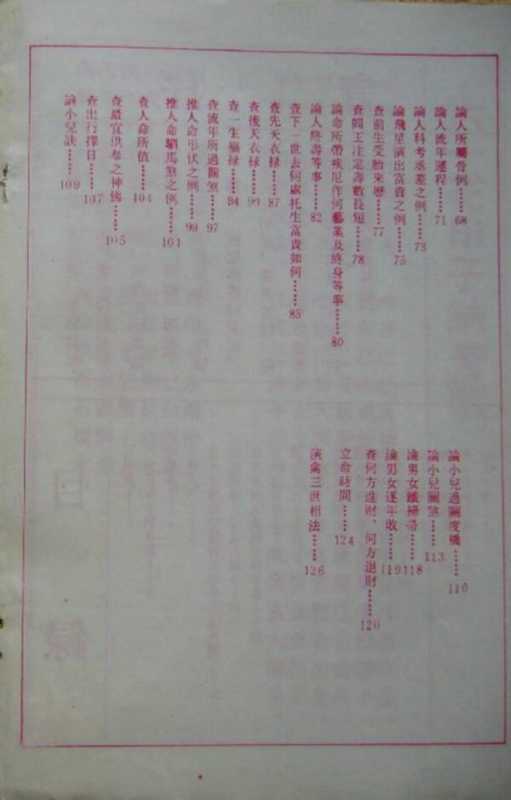 論人所屬骨例……68
論人流年運程……71
論人科考丞差之例……73
論飛星演出富貴之例……75
查前生受胎來歷……77
查閻王註定壽數長短……78
論命所帶疾厄作何藝業及終身等事……80
論人終壽等事……82
查下一世去何處托生富貴如何……85
查先天衣祿……87
查後天衣祿……90
查一生福祿……94
查流年所過關煞……97
推人命吊伏之例……99
推人命驛馬煞之例……101
查人命所值……104
查最宜供奉之神佛……105
查出行擇日……107
論小兒訣……109
論小兒過關度橋……110
論小兒關煞……113
論男女鐵掃帚……118
論男女逐年敗……119
查何方進財、何方退財……120
立命時間……124
演禽三世相法……126
目
錄